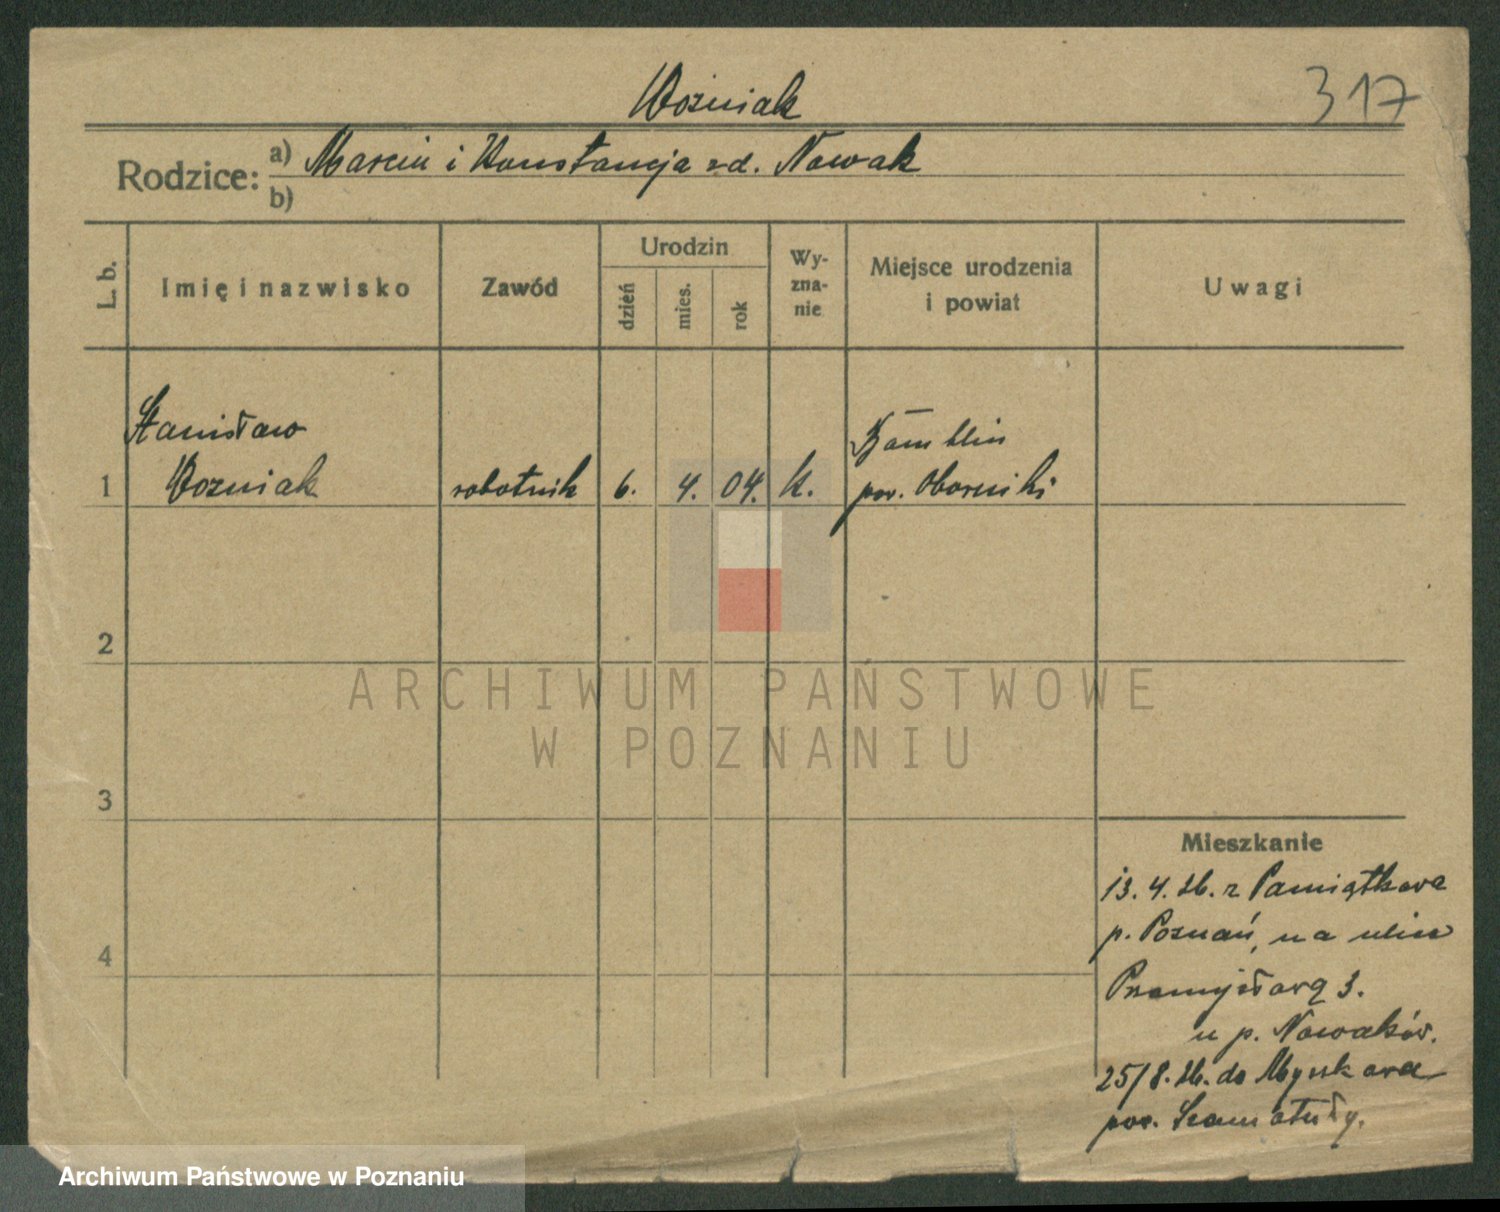 Woźniak
317
Rodzice: a) Marcin i Konstancja zd. Nowak
b)
L. b.
Imię i nazwisko
Zawód
Urodzin
dzień
mies.
rok
Wy-
zna-
nie
Miejsce urodzenia
i powiat
Uwagi
Stanisław
1 Woźniak robotnik 6. 4. 04. k.
pow. Oborniki
2
3
4
ARCHIWUM PAŃSTWOWE
W POZNANIU
Mieszkanie
13. 4. 26. z Pamiątkowa
p. Poznań, na ulicę
Przemysłową 3.
u p. Nowaków.
25/8. 26. do Myszkowa
pow. Szamotuły.
Archiwum Państwowe w Poznaniu